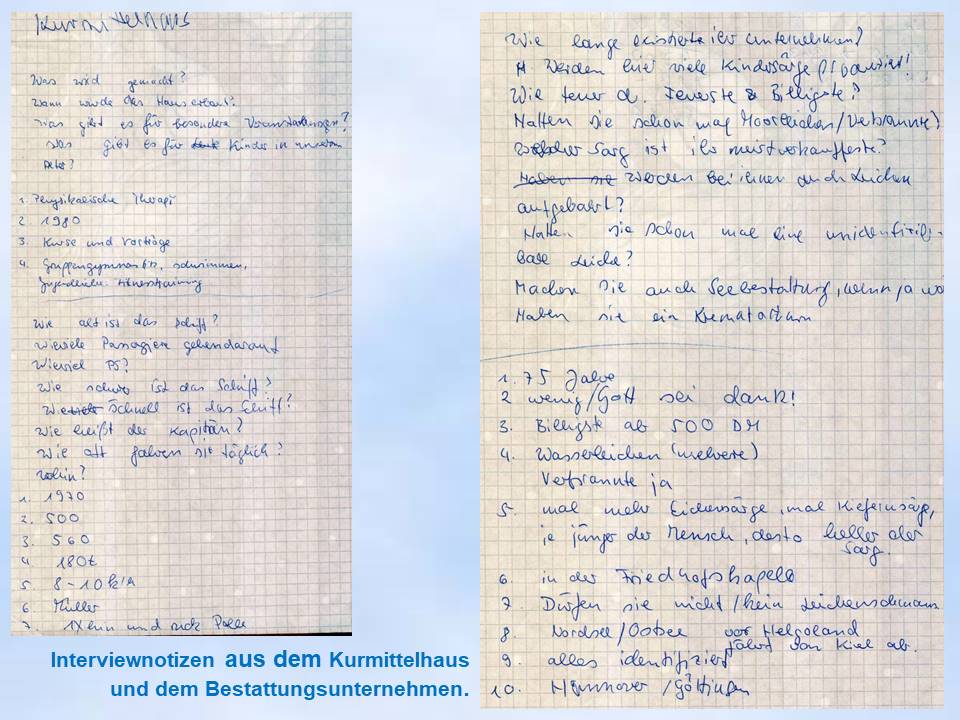 Kurmittelhaus
Was wird gemacht?
Wann wurde das Haus erbaut?
Was gibt es für besondere Veranstaltungen?
Was gibt es für Kinder in unserem
Alter?
1. Physikalische Therapi
2. 1980
3. Kurse und Vorträge
4. Gruppengymnastik, schwimmen,
Wie alt ist das Schiff?
Wieviele Passagiere gehen darauf
Wieviel PS?
Wie schwer ist das Schiff?
Wie schnell ist das Schiff?
Wie heißt der Kapitän?
Wie oft fahren sie täglich?
Wohin?
1. 1970
2. 500
3. 560
4. 180t
5. 8-10
6. Müller
7. 1x hin und rück Polle
Wie lange existiert ihr Unternehmen?
Werden hier viele Kindersärge produziert!
Wie teuer d. Teuerste & Billigste?
Hatten Sie schon mal Moorleichen/Verbrannte?
Welcher Sarg ist ihr meistverkaufteste?
Haben sie Werden bei ihnen auch Leichen
aufgebahrt?
Hatten sie schon mal eine unidentifizier-
bare Leiche?
Machen Sie auch Seebestattung, wenn ja wo
Haben sie ein Krematorium
1. 75 Jahre
2 wenig/Gott sei dank!
3. Billigste ab 500 DM
4. Wasserleichen (mehrere)
Verbrannte ja
5. mal mehr Eichensärge, mal Kiefernsärge,
je jünger der Mensch, desto heller der
Sarg.
6. in der Friedhofskapelle
7. Dürfen sie nicht/kein Leichenschmaus
8. Nordsee/Ostsee vor Helgoland
fährt von Kiel ab.
9. alles identifiziert
10. Hannover/Göttingen
Interviewnotizen aus dem Kurmittelhaus
und dem Bestattungsunternehmen.